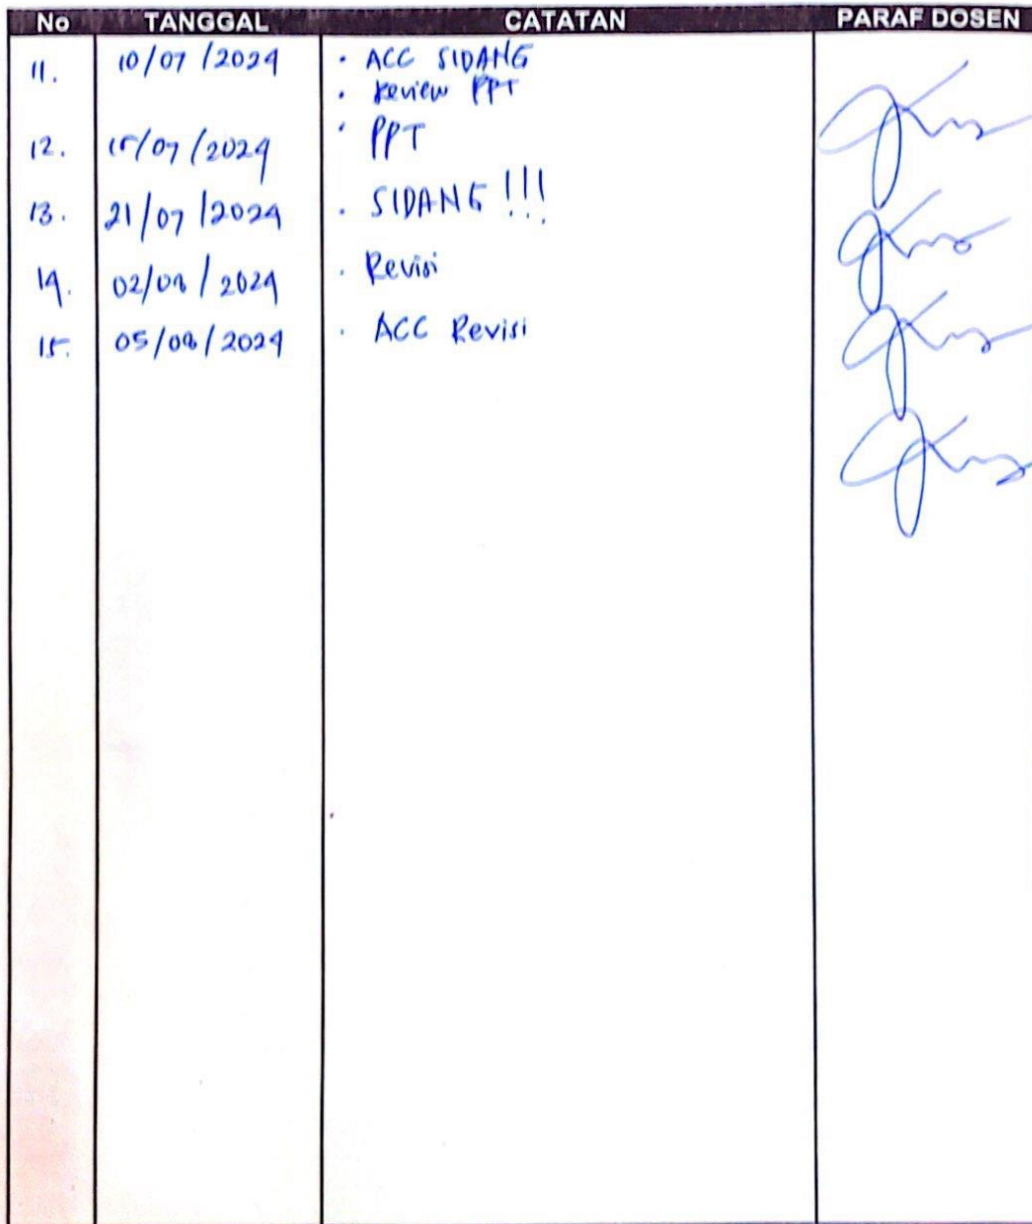 No TANGGAL CATATAN PARAF DOSEN
11. 10/07/2024 · ACC SIDANG
· Review PPT
12. 15/07/2024 · PPT
13. 21/07/2024 · SIDANG !!!
14. 02/08/2024 · Revisi
15. 05/08/2024 · ACC Revisi